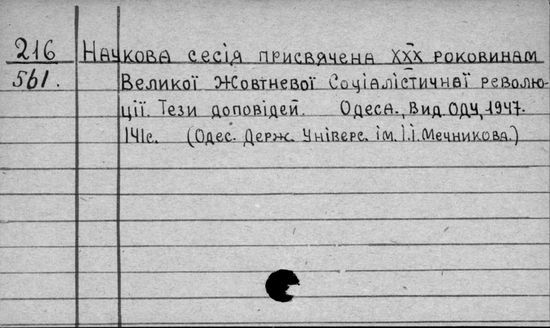 216 Наукова сесія присвячена XXX роковинам
561. Великої Жовтневої Соціалістичнаї револю-
ції. Тези доповідей. Одеса., Вид. ОДУ, 1947.
141с. (Одес. Держ. Універс. ім. І.І. Мечникова.)